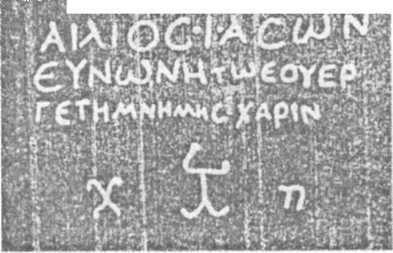 ΑΙΛΙΟϹ·Ι·ΑϹωΝ
ЄΥΝωΝΗΤωЄΟΥЄΡ
ΓЄΤΗΜΝΗΜΗϹΧΑΡΙΝ
χ π